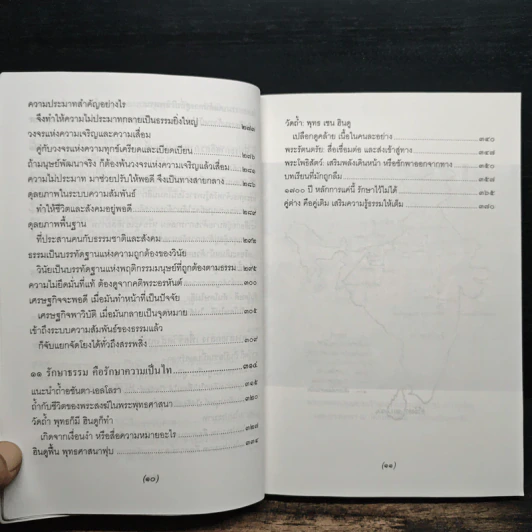 ความประมาทสำคัญอย่างไร
จึงทำให้ความไม่ประมาทกลายเป็นธรรมยิ่งใหญ่ ๒๗๗
วงจรแห่งความเจริญและความเสื่อม
คู่กับวงจรแห่งความทุกข์เครียดและเบียดเบียน ๒๘๒
ถ้ามนุษย์พัฒนาจริง ก็ต้องพ้นวงจรแห่งความเจริญแล้วเสื่อม
ความไม่ประมาท มาช่วยปรับให้พอดี จึงเป็นทางสายกลาง
ดุลยภาพในระบบความสัมพันธ์
ทำให้ชีวิตและสังคมอยู่พอดี ๒๘๙
ดุลยภาพพื้นฐาน
ที่ประสานคนกับธรรมชาติและสังคม ๒๙๒
ธรรมเป็นบรรทัดฐานแห่งความถูกต้องของวินัย
วินัยเป็นบรรทัดฐานแห่งพฤติกรรมมนุษย์ที่ถูกต้องตามธรรม ๒๙๕
ความไม่ยึดมั่นที่แท้ ต้องดูจากคติพระอรหันต์ ๓๐๐
เศรษฐกิจจะพอดี เมื่อมันทำหน้าที่เป็นปัจจัย
เศรษฐกิจพาวิบัติ เมื่อมันกลายเป็นจุดหมาย ๓๐๕
เข้าถึงระบบความสัมพันธ์ของธรรมแล้ว
ก็จับแยกจัดโยงได้ทั่วถึงสรรพสิ่ง ๓๐๙
๑๑ รักษาธรรม คือรักษาความเป็นไท ๓๑๔
แนะนำถ้ำอชันตา-เอลโลรา ๓๑๕
ถ้ำกับชีวิตของพระสงฆ์ในพระพุทธศาสนา ๓๒๐
วัดถ้ำ พุทธก็มี ฮินดูก็ทำ
เกิดจากเงื่อนงำ หรือสื่อความหมายอะไร ๓๒๗
ฮินดูฟื้น พุทธศาสนาฟุบ ๓๓๔
(๑๐)
วัดถ้ำ: พุทธ เชน ฮินดู
เปลือกดูคล้าย เนื้อในคนละอย่าง ๓๔๐
พระรัตนตรัย: สื่อเชื่อมต่อ และส่งเข้าสู่ทาง ๓๔๗
พระโพธิสัตว์: เสริมพลังเดินหน้า หรือชักพาออกจากทาง ๓๕๐
บทเรียนที่มักถูกลืม ๓๕๗
๑๗๐๐ ปี หลักการแค่นี้ รักษาไว้ไม่ได้ ๓๖๕
คู่ต่าง คือคู่เติม เสริมความรู้ธรรมให้เต็ม ๓๗๐
(๑๑)